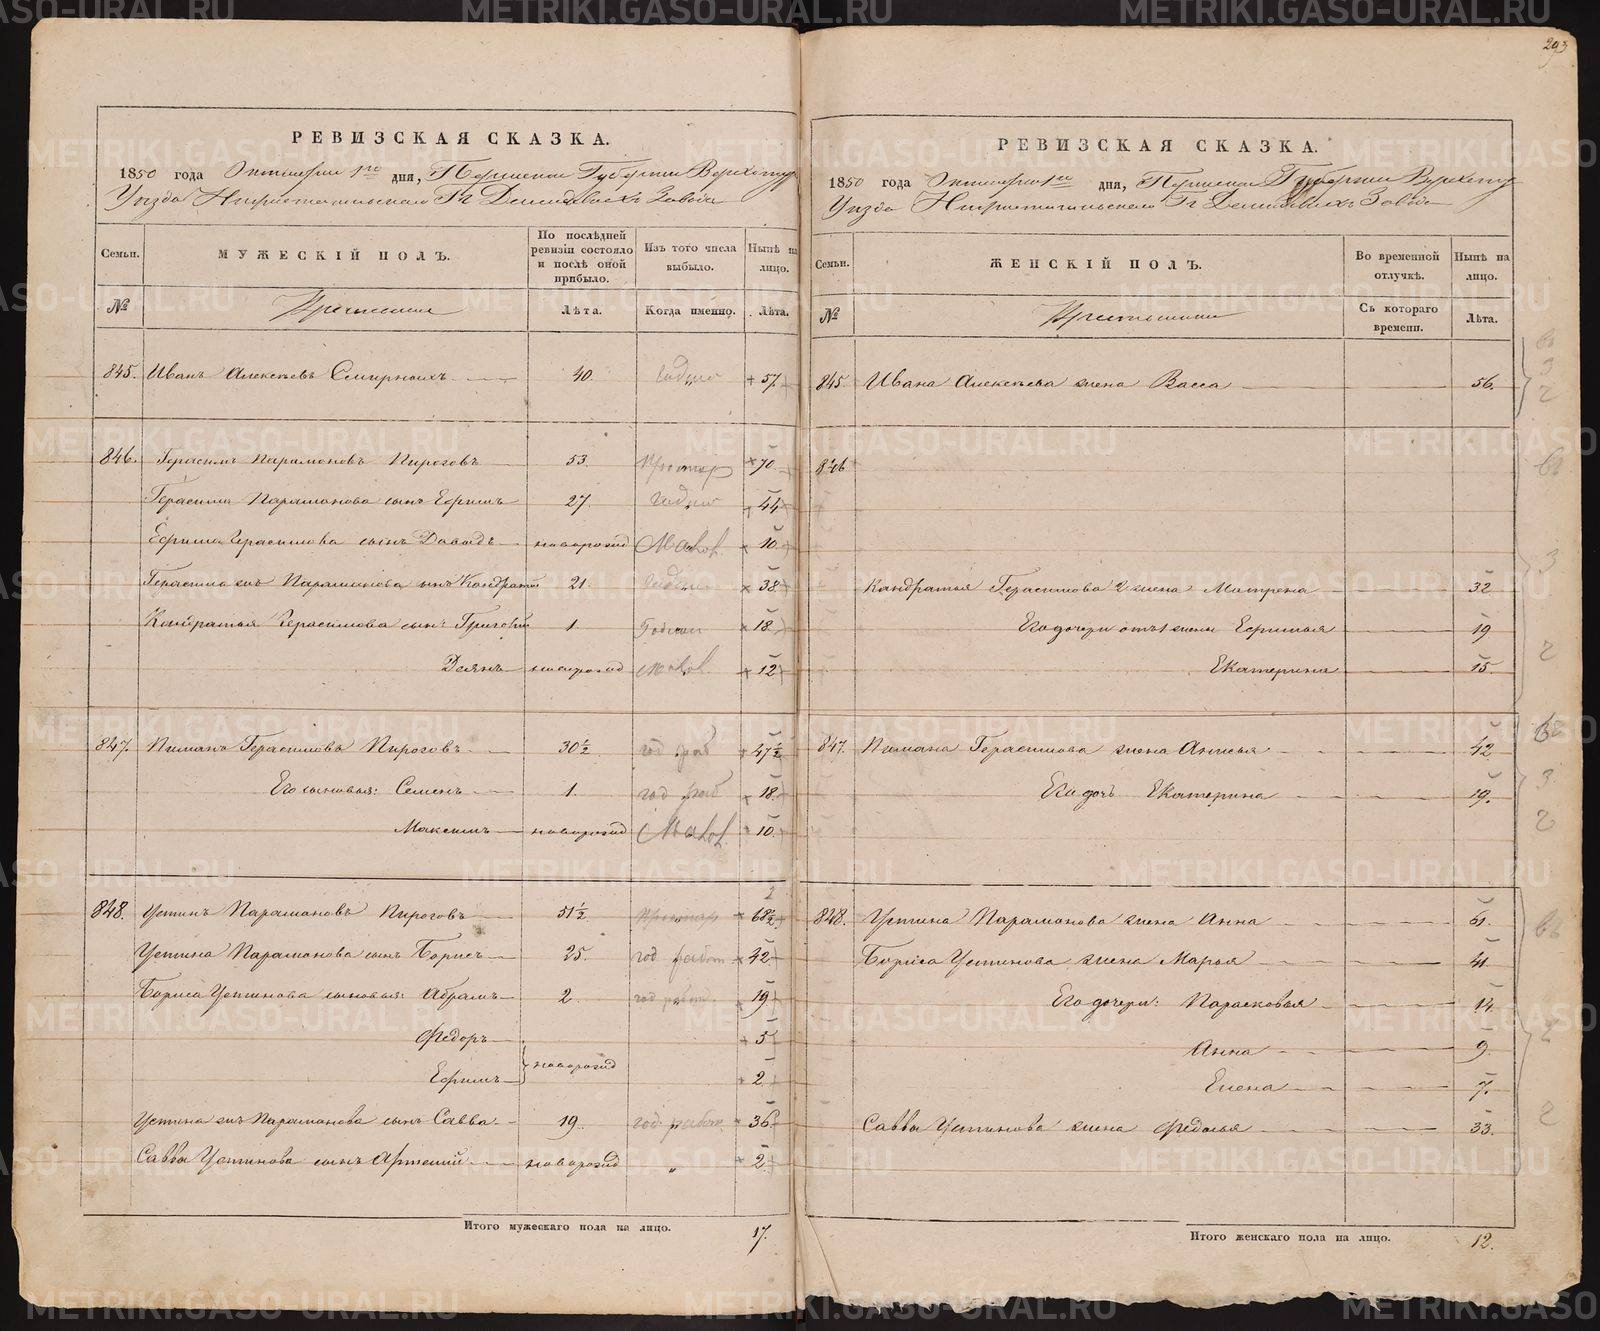 293
РЕВИЗСКАЯ СКАЗКА.
1850 года Октября 1го дня, Пермской Губернии Верхотур
Уезда Нижнетагильскаго Гг Демидовыхъ Завода
Семьи.
МУЖЕСКІЙ ПОЛЪ.
По послѣдней ревизіи состояло и послѣ оной прибыло.
Изъ того числа выбыло.
Нынѣ на лицо.
№
Лѣта.
Когда именно.
Лѣта.
845. Иванъ Алексѣевъ Смирныхъ 40. годно 57
846. Герасимъ Парамоновъ Пироговъ 53. 70
Герасима Парамонова сынъ Ефимъ 27. годно 44
Ефима Герасимова сынъ Давыдъ новорожд Малол. 10
Герасима жъ Парамонова сынъ Кондратій 21. 38
Кондратья Герасимова сынъ Григорій 1. 18
Демянъ новорожд Малол. 12
847. Пиманъ Герасимовъ Пироговъ 30½ год раб 47½
Его сыновья: Семенъ 1. год раб 18
Максимъ новорожд Малол. 10
848. Устинъ Парамоновъ Пироговъ 51½ 68½
Устина Парамонова сынъ Борисъ 25. год работ 42
Бориса Устинова сыновья: Абрамъ 2. год работ 19
Федоръ 5
новорожд
Ефимъ 2
Устина жъ Парамонова сынъ Савва 19. год работ 36
Саввы Устинова сынъ Артемій новорожд „ 2
Итого мужескаго пола на лицо. 17.
РЕВИЗСКАЯ СКАЗКА.
1850 года Октября 1го дня, Пермской Губернии Верхотур
Уезда Нижнетагильскаго Гг Демидовыхъ Завода
Семьи.
ЖЕНСКІЙ ПОЛЪ.
Во временной отлучкѣ.
Нынѣ на лицо.
№
Съ котораго времени.
Лѣта.
845. Ивана Алексѣева жена Васса 56.
846
Кондратья Герасимова 2 жена Матрена 32
Его дочери отъ 1 жены Ефимья 19
Екатерина 15.
847. Пимана Герасимова жена Анисья 42
Его дочь Екатерина 19.
848. Устина Парамонова жена Анна 61.
Бориса Устинова жена Марья 41.
Его дочери: Парасковья 14
Анна 9.
Елена 7.
Саввы Устинова жена Федосья 33.
Итого женскаго пола на лицо. 12.
METRIKI.GASO-URAL.RU